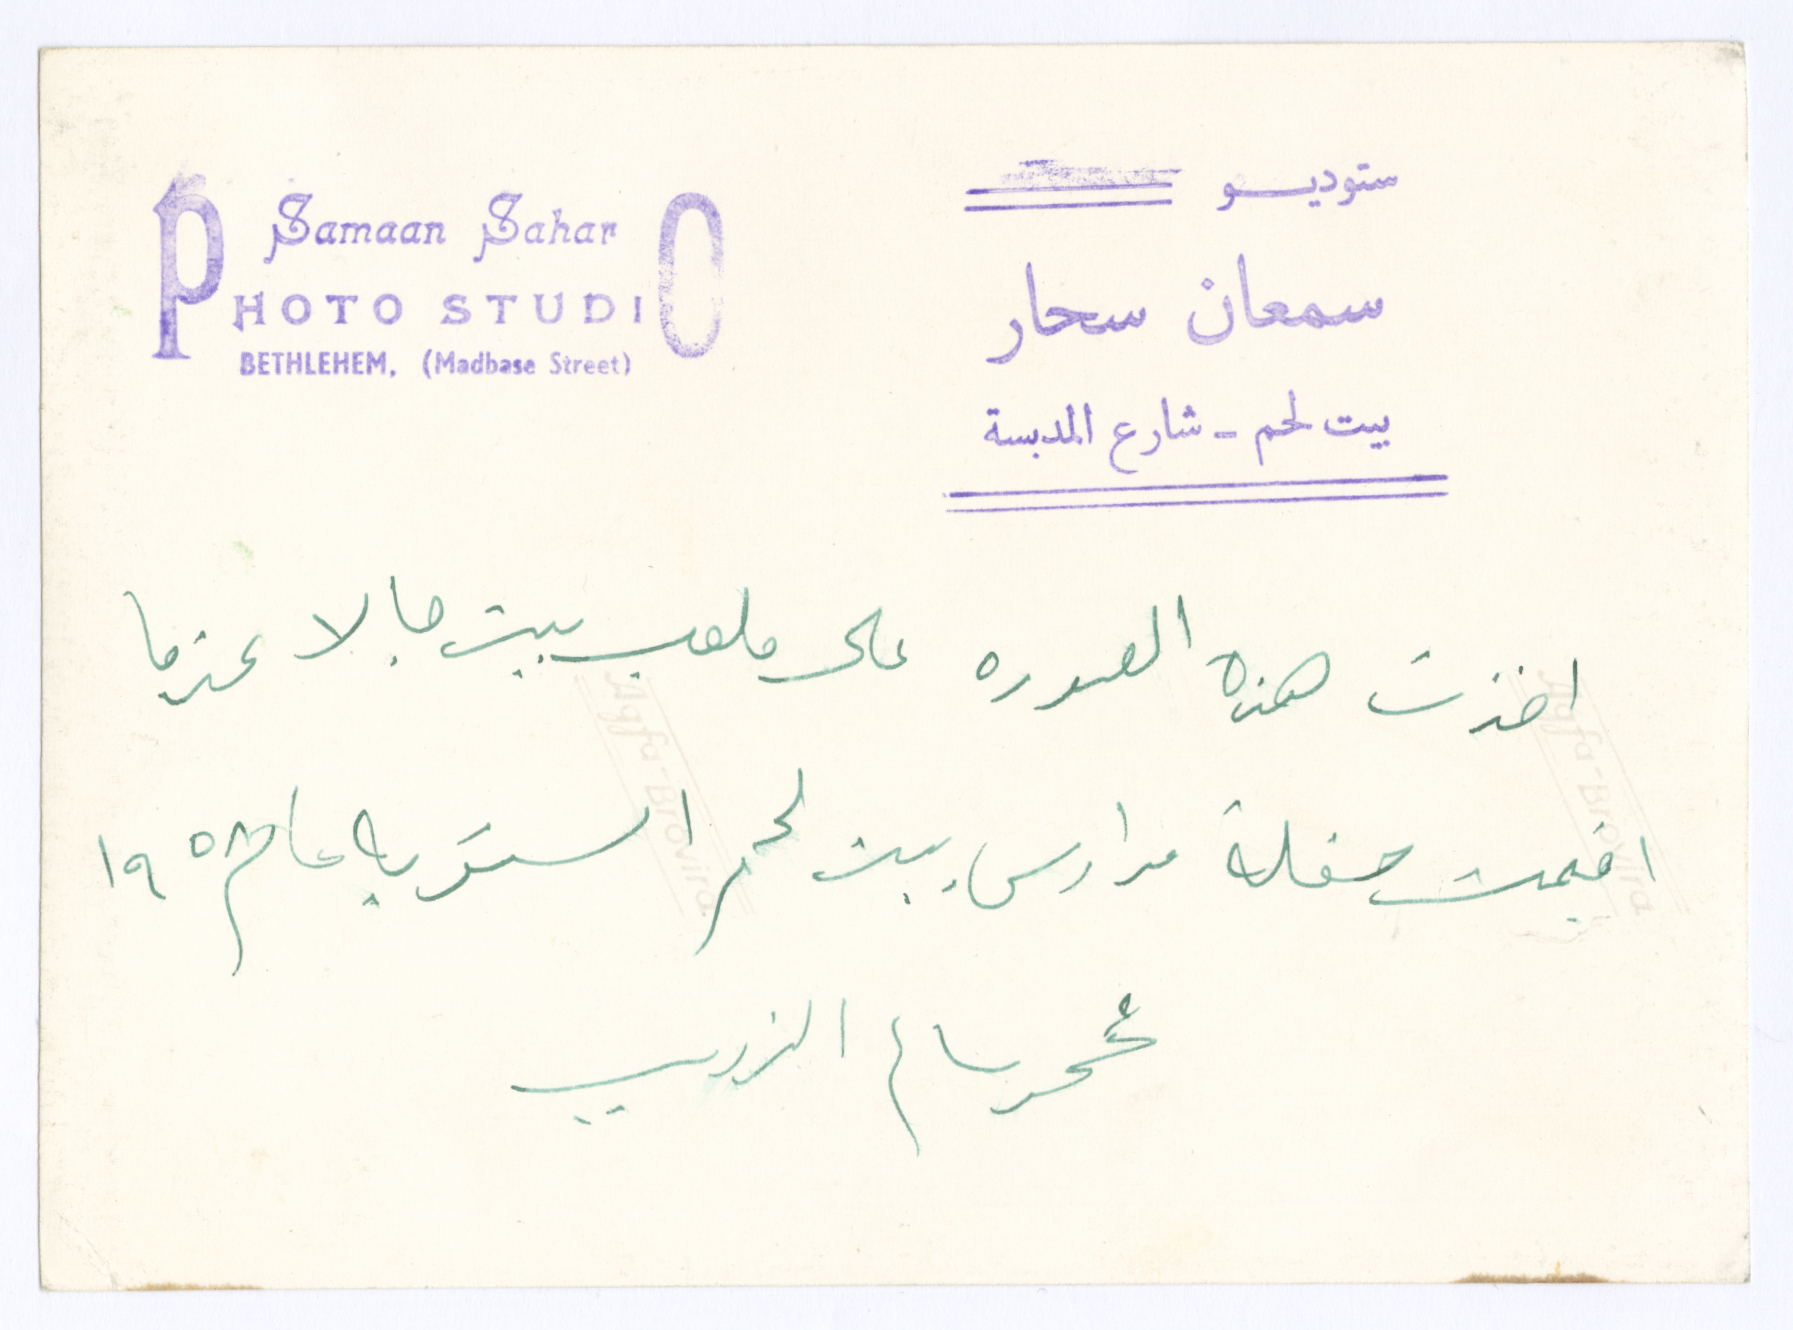 Samaan Sahar
PHOTO STUDIO
BETHLEHEM, (Madbase Street)
ستوديو
سمعان سحار
بيت لحم - شارع المدبسة
اخذت هذه الصوره على ملعب بيت جالا عندما
اقيمت حفلة مدارس بيت لحم السنويه عام ١٩٥٨
الزرد
Agfa-Brovira
Agfa-Brovira